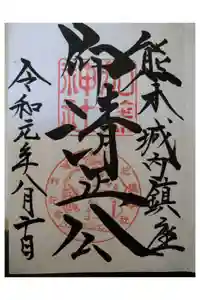 熊本城内鎮座
仰清正公
令和元年八月十日
加藤
神社